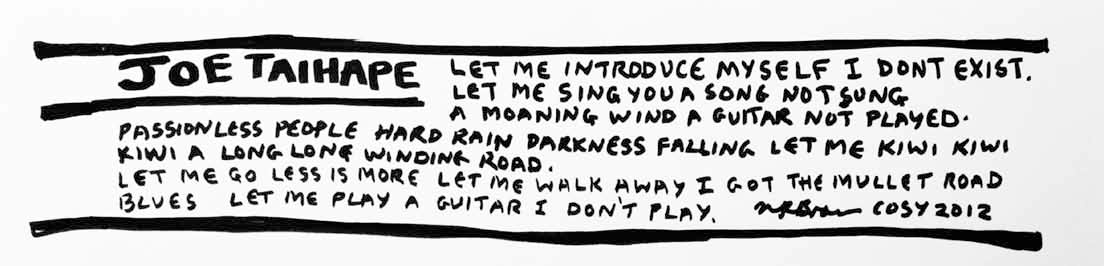 JOE TAIHAPE
LET ME INTRODUCE MYSELF I DONT EXIST.
LET ME SING YOU A SONG NOT SUNG
A MOANING WIND A GUITAR NOT PLAYED.
PASSIONLESS PEOPLE HARD RAIN DARKNESS FALLING LET ME KIWI KIWI
KIWI A LONG LONG WINDING ROAD.
LET ME GO LESS IS MORE LET ME WALK AWAY I GOT THE MULLET ROAD
BLUES LET ME PLAY A GUITAR I DON'T PLAY. COSY 2012